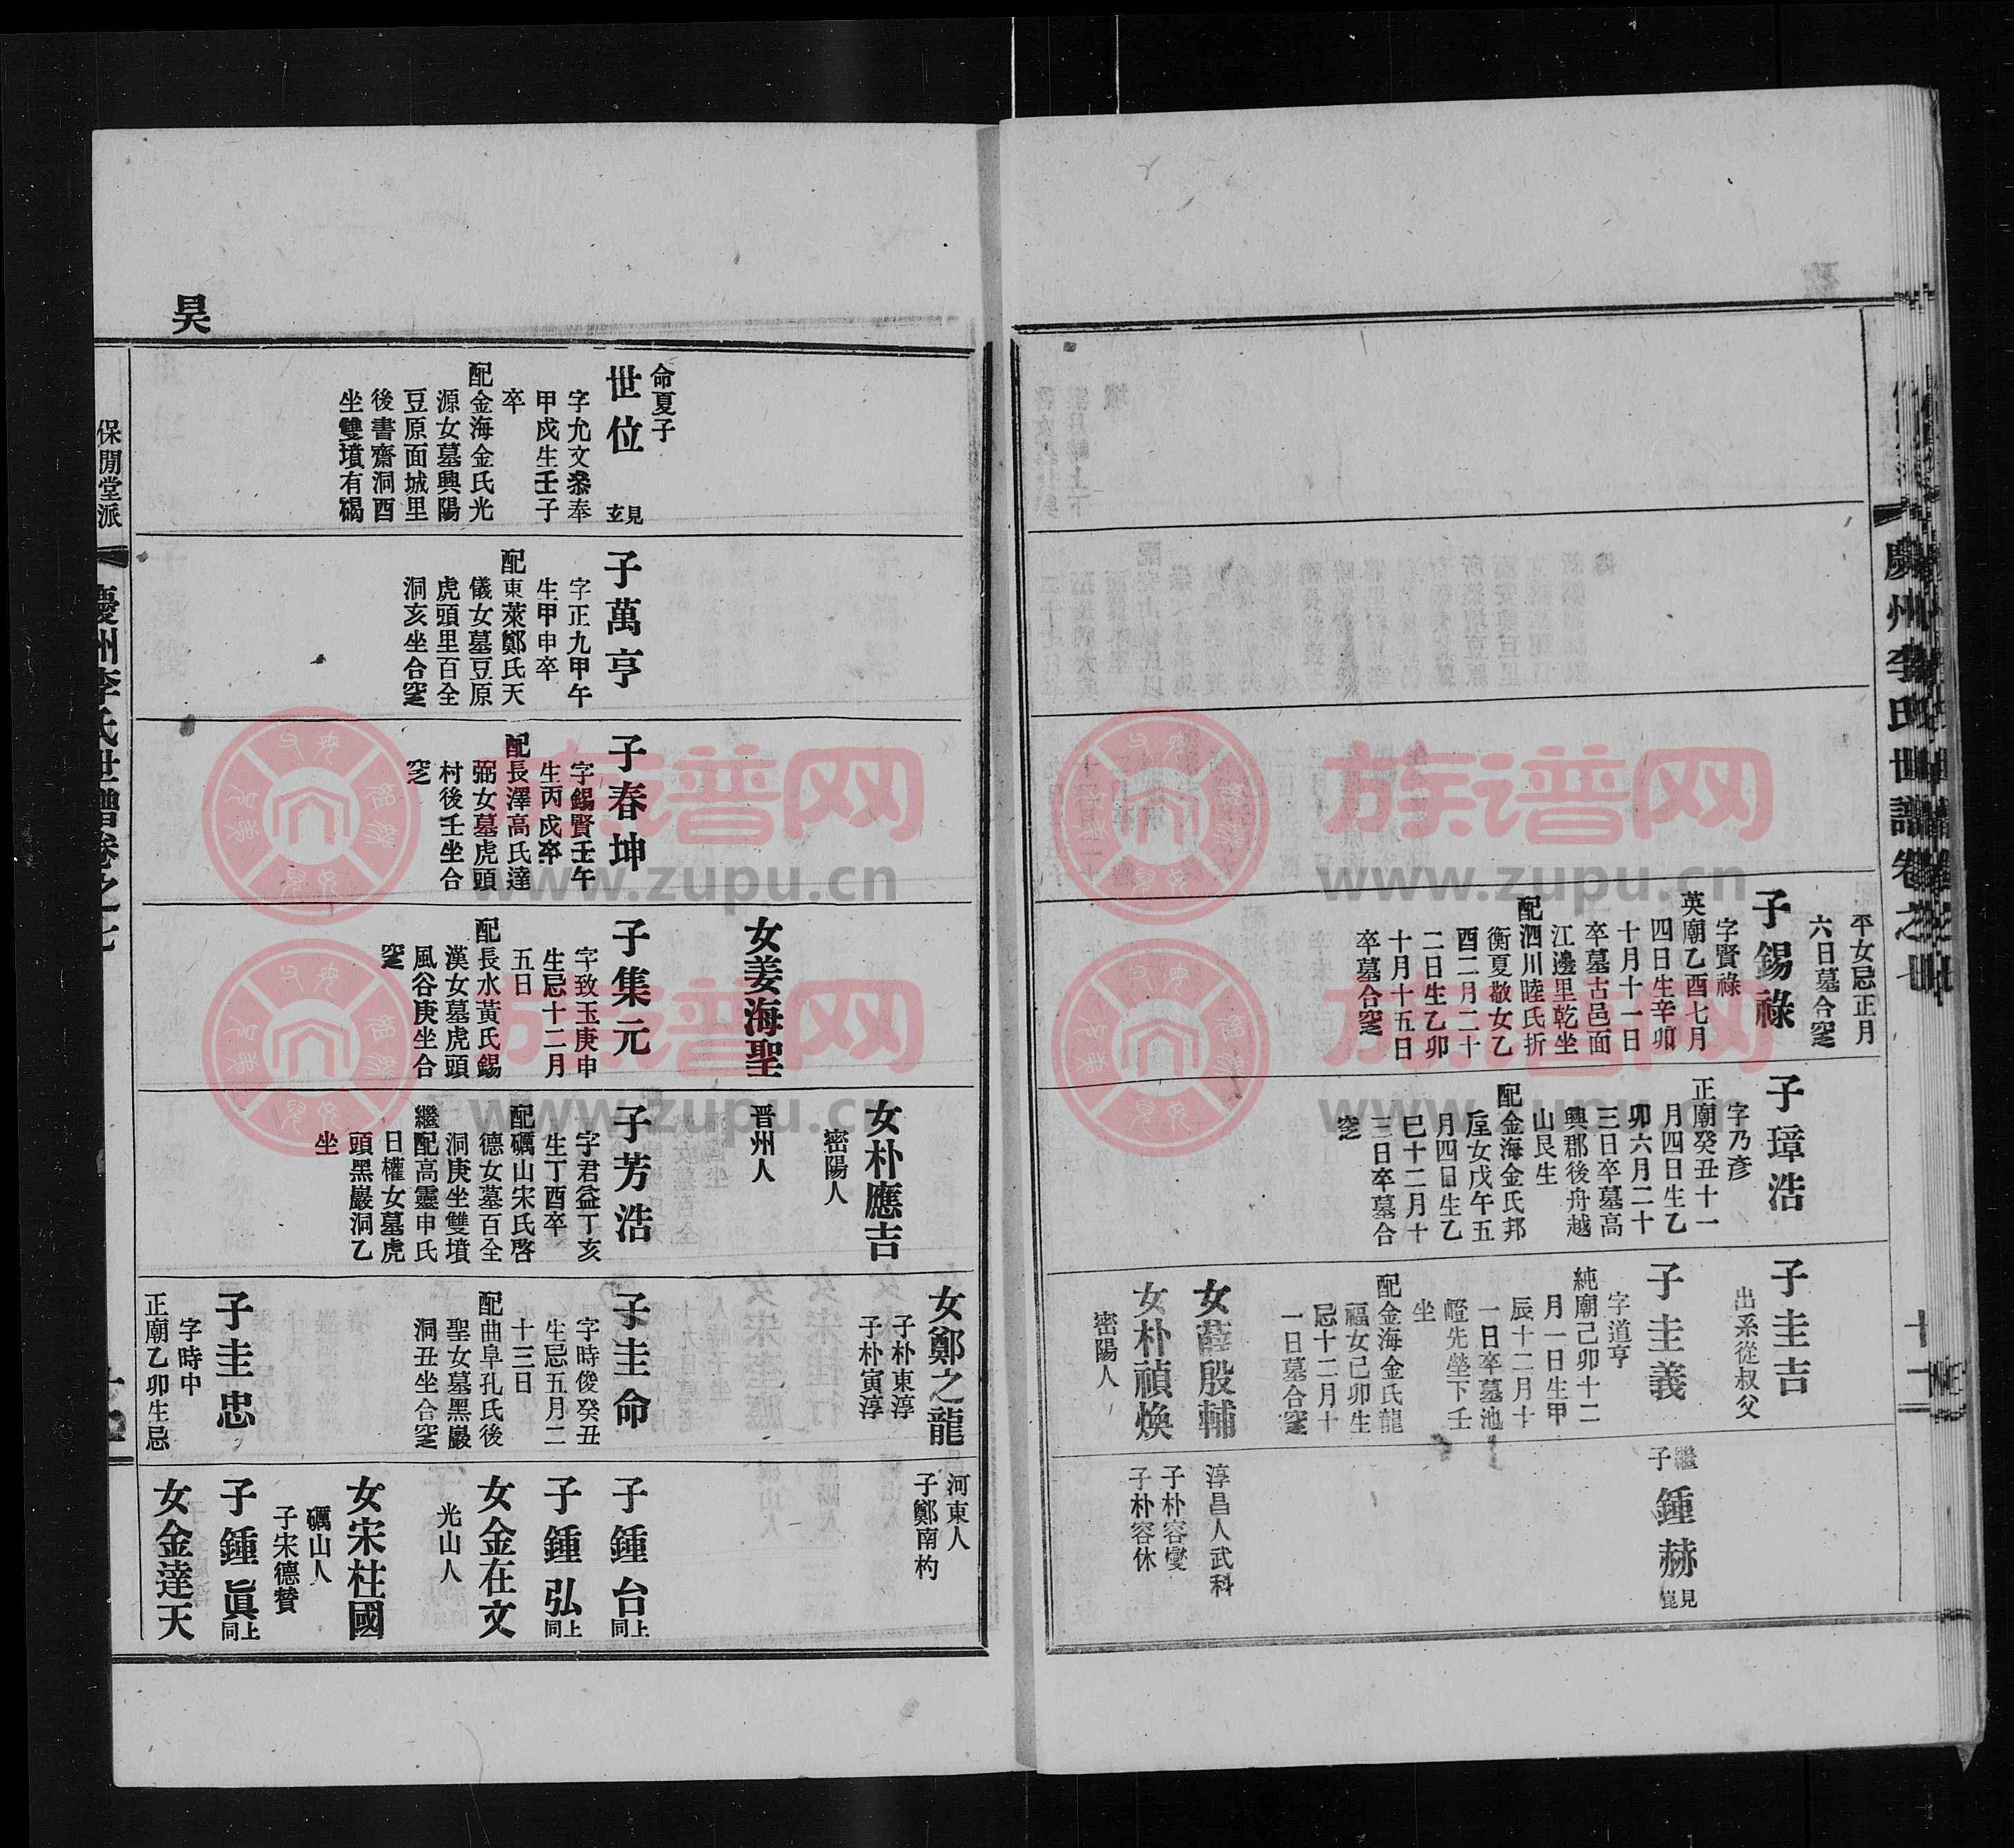 慶州李氏世譜卷之七
十一
平女忌正月
六日墓合窆
子錫祿
字賢祿
英廟乙酉七月
四日生辛卯
十月十一日
卒墓古邑面
江邊里乾坐
配泗川睦氏折
衡夏敬女乙
酉二月二十
二日生乙卯
十月十五日
卒墓合窆
子璋浩
字乃彥
正廟癸丑十一
月四日生乙
卯六月二十
三日卒墓高
興郡後舟越
山艮坐
配金海金氏邦
垕女戊午五
月四日生乙
巳十二月十
三日卒墓合
窆
子圭吉
出系從叔父
子圭義
字道亨
純廟己卯十二
月一日生甲
辰十二月十
一日卒墓池
嶝先塋下壬
坐
配金海金氏龍
福女己卯生
忌十二月十
一日墓合窆
女薛殷輔
女朴禎煥
密陽人
繼子鍾赫
見崑
淳昌人武科
子朴容燮
子朴容休
昊
命夏子
世位
見玄
字允文叅奉
甲戌生壬子
卒
配金海金氏光
源女墓興陽
豆原面城里
後書齋洞酉
坐雙墳有碣
子萬亨
字正九甲午
生甲申卒
配東萊鄭氏天
儀女墓豆原
虎頭里百全
洞亥坐合窆
子春坤
字錫賢壬午
生丙戌卒
配長澤高氏達
弼女墓虎頭
村後壬坐合
窆
女姜海聖
子集元
字致玉庚申
生忌十二月
五日
配長水黃氏錫
漢女墓虎頭
風谷庚坐合
窆
女朴應吉
密陽人
晋州人
子芳浩
字君益丁亥
生丁酉卒
配礪山宋氏啓
德女墓百全
洞庚坐雙墳
繼配高靈申氏
日權女墓虎
頭黑巖洞乙
坐
女鄭之龍
子朴東淳
子朴寅淳
子圭命
字時俊癸丑
生忌五月二
十三日
配曲阜孔氏後
聖女墓黑巖
洞丑坐合窆
子圭忠
字時中
正廟乙卯生忌
河東人
子鄭南杓
子鍾台
上同
子鍾弘
上同
女金在文
光山人
女宋柱國
礪山人
子宋德贊
子鍾眞
上同
女金達天
保閒堂派
慶州李氏世譜卷之七